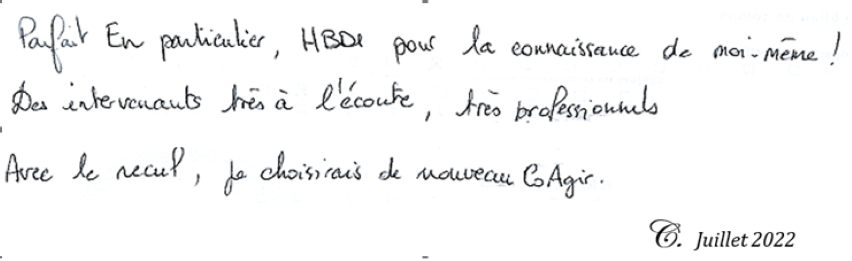 Parfait En particulier, HBDI pour la connaissance de moi-même !
Des intervenants très à l'écoute, très professionnels
Avec le recul, je choisirais de nouveau CoAgir.
C. Juillet 2022